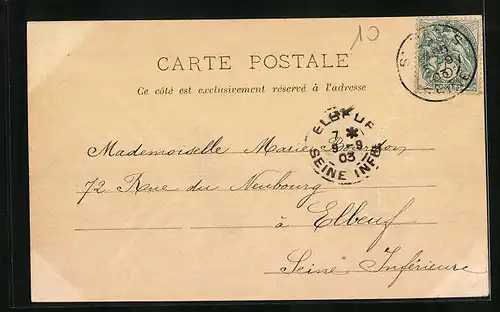 10
CARTE POSTALE
Ce côté est exclusivement réservé à l'adresse
ELBEUF
7 *
9-9
03
SEINE INFRE
Mademoiselle Marie
72 Rue du Neubourg
à Elbeuf
Seine Inférieure